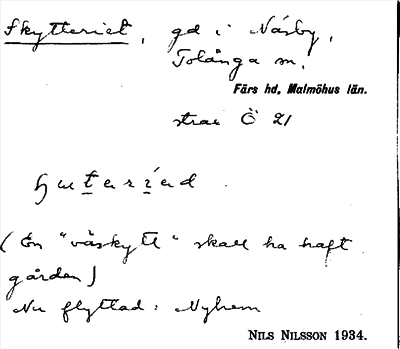 Skytteriet, gd i Näsby,
Tolånga sn.
Färs hd, Malmöhus län.
strax Ö 21
(En "våskytt" skall ha haft
gården)
Nu flyttad: Nyhem
NILS NILSSON 1934.